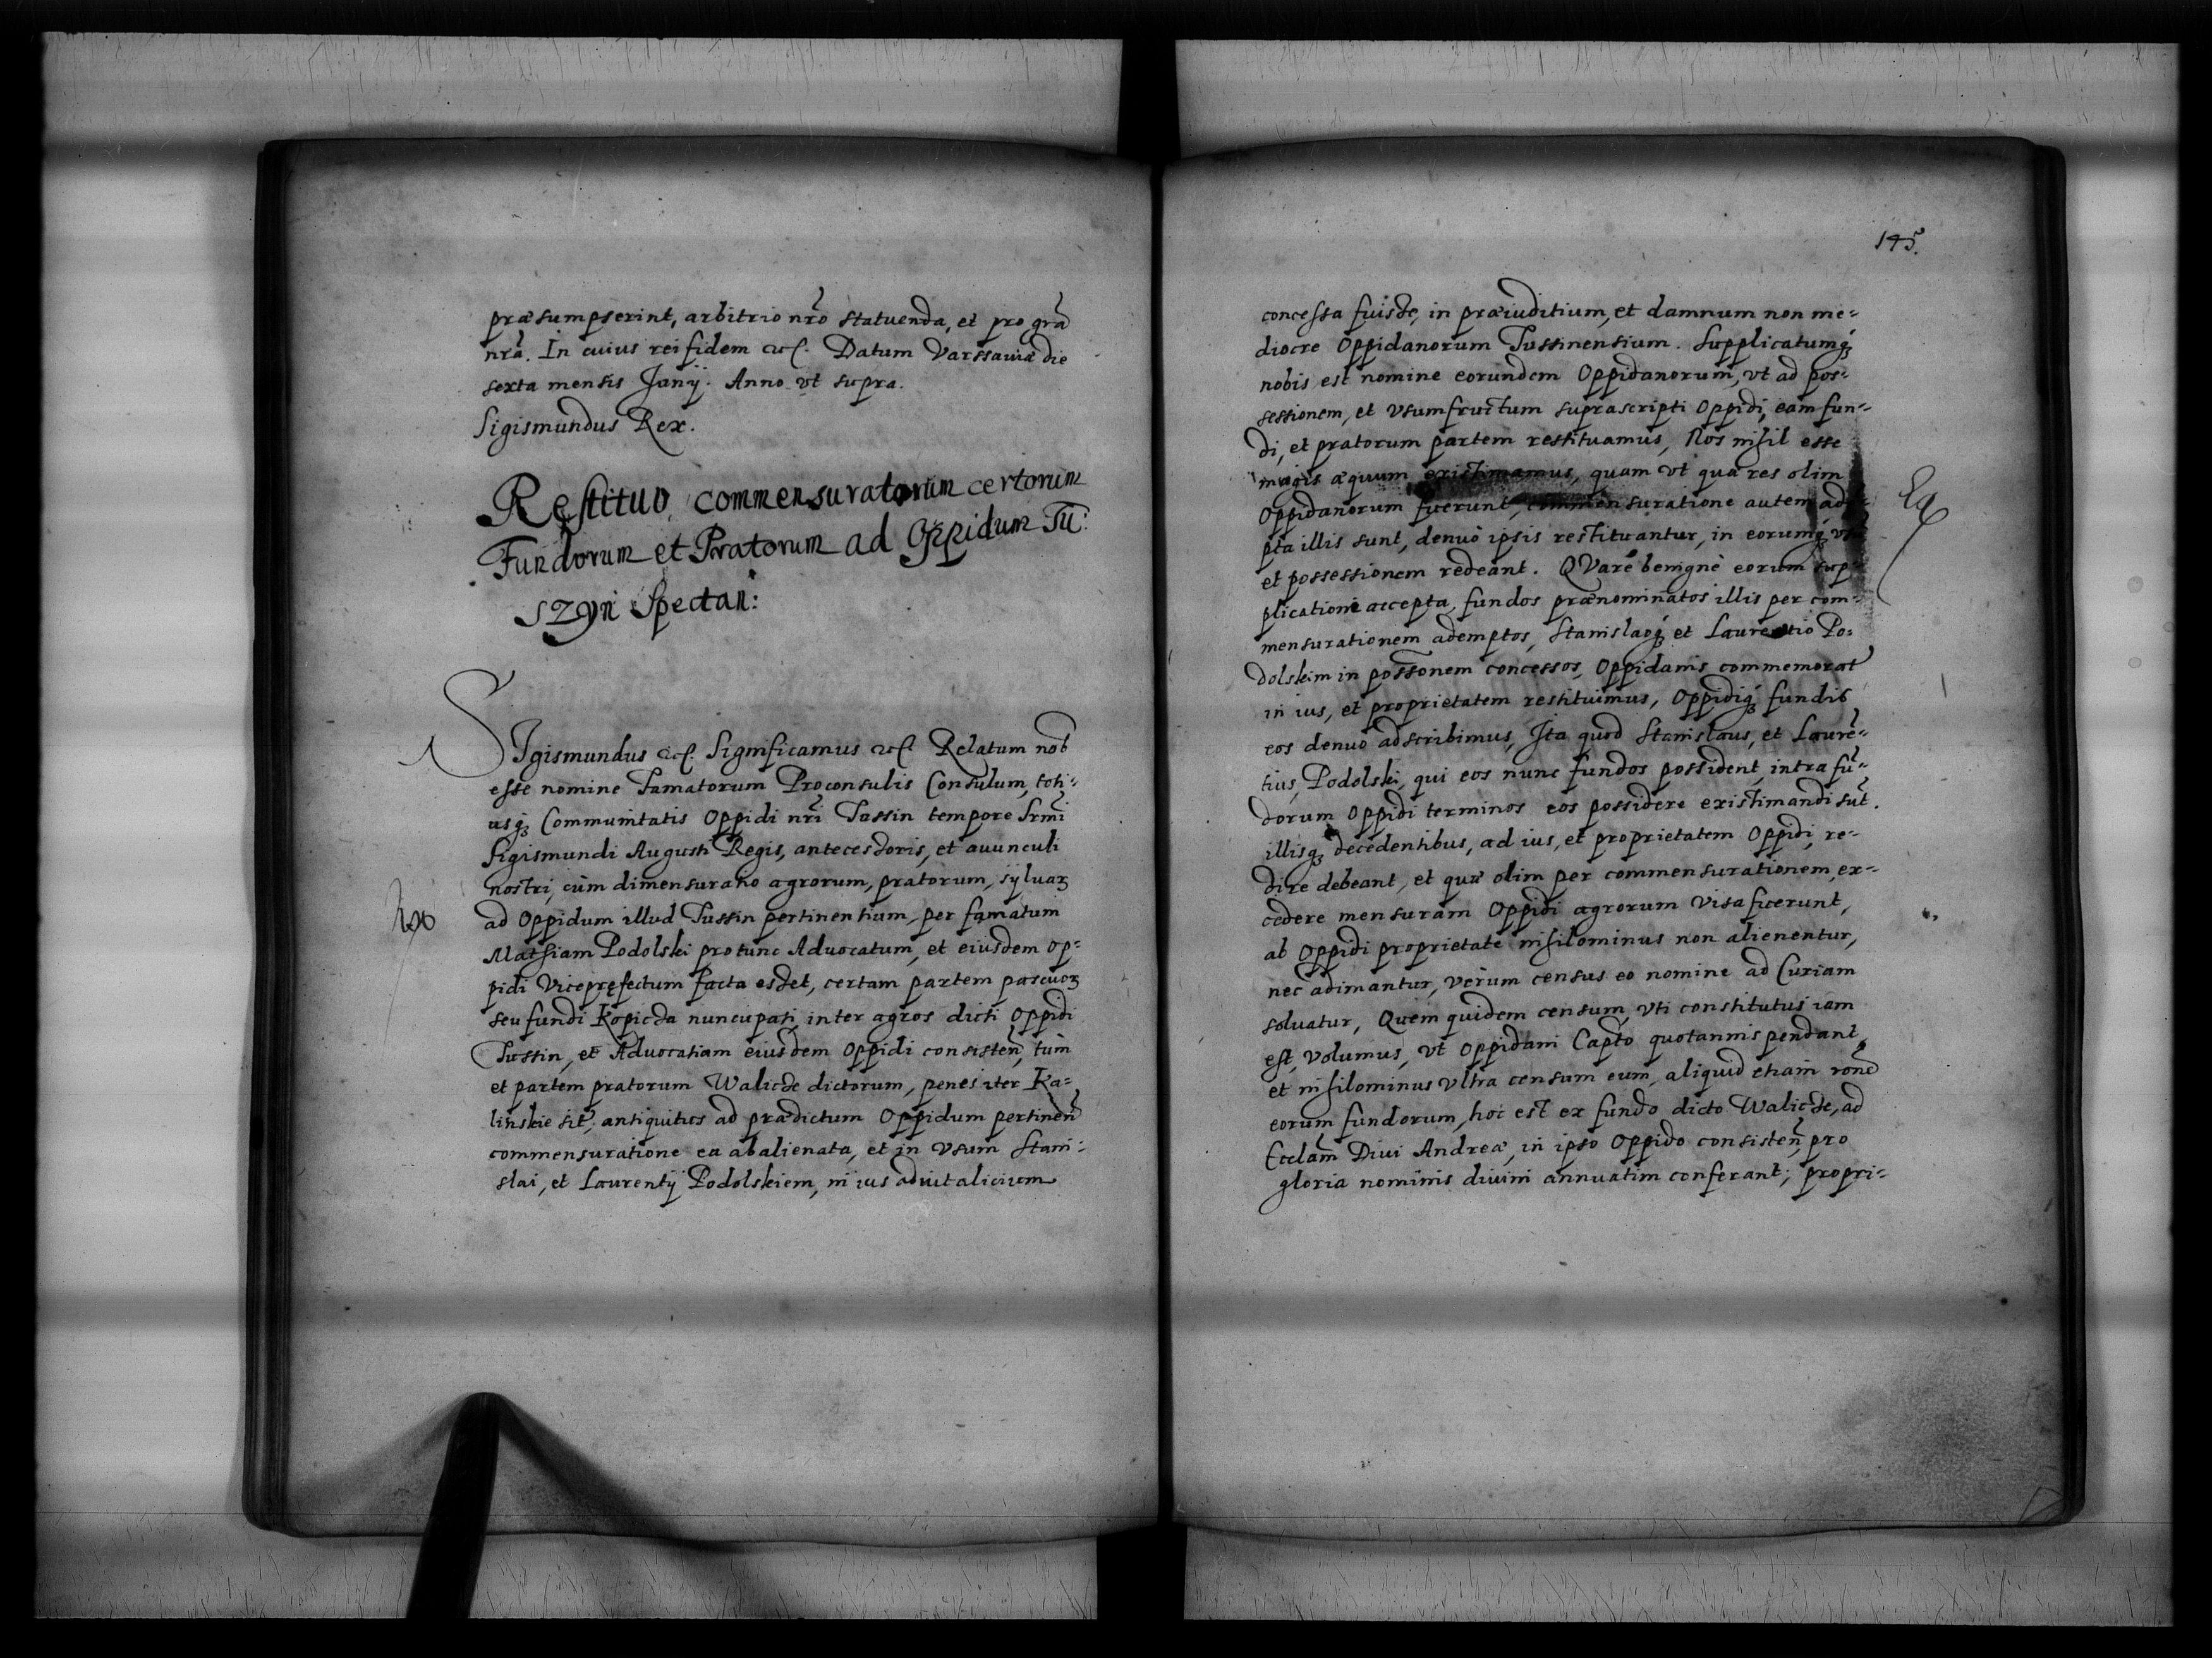 præsumpserint, arbitrio nr̃o statuenda, et pro gr̃a
nr̃a. In cuius rei fidem etc. Datum Varssaviæ die
sexta mensis Junij. Anno vt supra.
Sigismundus Rex.
Restituo commensuratorum certorum
Fundorum et Pratorum ad Oppidum Tu:
szyn Spectan:
SIgismundus etc. Significamus etc. Relatum nob
esse nomine Famatorum Proconsulis Consulum, toti-
usq₃ Communitatis Oppidi nr̃i Tussin tempore Srm̃i
Sigismundi Augusti Regis, antecessoris, et auunculi
nostri, cùm dimensuratio agrorum, pratorum, syluaꝝ
ad Oppidum illud Tussin pertinentium, per famatum
Mathiam Podolski pro tunc Aduocatum, et eiusdem op-
pidi Vicepręfectum facta esset, certam partem pascuoꝝ
seu fundi Kopicda nuncupati, inter agros dicti Oppidi
Tussin, et Aduocatiam eiusdem Oppidi consisteñ, tùm
et partem pratorum Walicde dictorum, penes iter Ka-
linskie sit̃, antiquitus ad prædictum Oppidum pertineñ
commensuratione ea abalienata, et in vsum Stani-
slai, et Laurentij Podolskiem, in ius aduitalicium
145.
concessa fuisse, in præiuditium, et damnum non me-
diocre Oppidanorum Tussinensium. Supplicatumq₃
nobis est nomine eorundem Oppidanorum, vt ad pos-
sessionem, et vsumfructum suprascripti Oppidi, eam fun-
di, et pratorum partem restituamus, Nos nihil esse
magis æquum existimamus, quam vt quæ res olim
Oppidanorum fuerunt, commensuratione autem ad-
pta illis sunt, denuò ipsis restituantur, in eorumq₃
et possessionem redeant. QVare benignè eorum sup-
plicatione accepta, fundos prænominatos illis per com-
mensurationem ademptos, Stanislaoq₃ et Laurentio Po-
dolskim in poss̃onem concessos, Oppidanis commemorat̃
in ius, et proprietatem restituimus, Oppidiq₃ fundis
eos denuò adscribimus, Ita quod Stanislaus, et Laurẽ-
tius, Podolski, qui eos nunc fundos possident, intra fũ-
dorum Oppidi terminos eos possidere existimandi sũt.
illisq₃ decedentibus, ad ius, et proprietatem Oppidi, re-
dire debeant, et quæ olim per commensurationem, ex-
cedere mensuram Oppidi agrorum visa fuerunt,
ab Oppidi proprietate nihilominus non alienentur,
nec adimantur, verùm census eo nomine ad Curiam
soluatur, Quem quidem censum, vti constitutus iam
est, volumus, vt Oppidani Capt̃o quotannis pendant,
et nihilominus vltra censum eum, aliquid etiam ron̄e
eorum fundorum, hoc est ex fundo dicto Walicde, ad
Eccłam Diui Andreæ, in ipso Oppido consisteñ, pro
gloria nominis diuini annuatim conferant; propri-